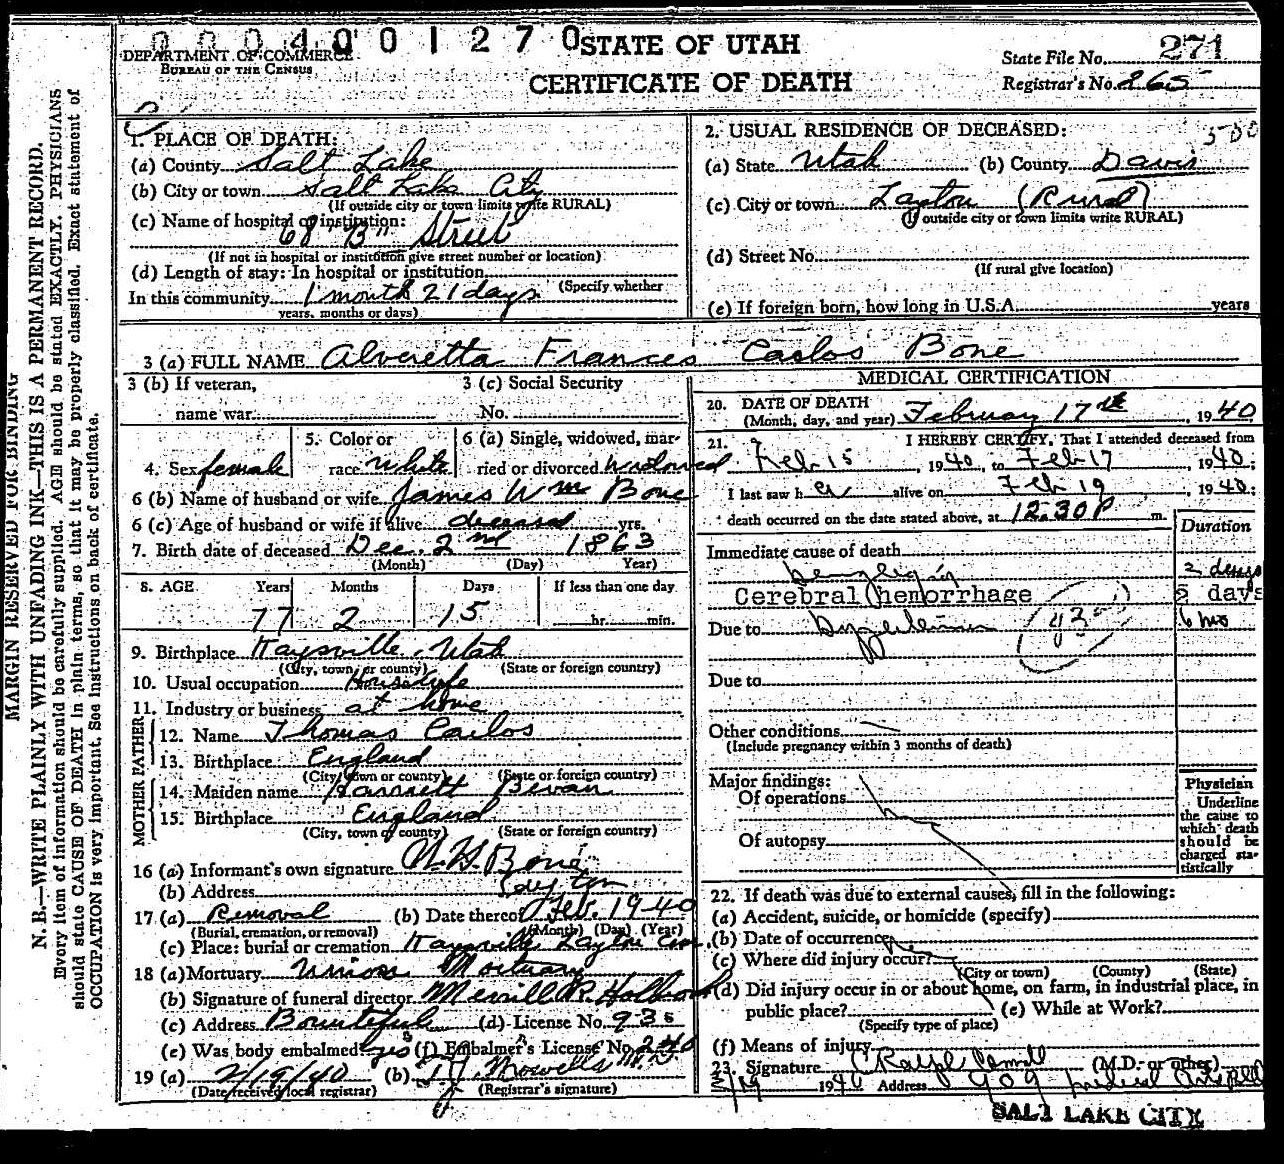 0004001270 STATE OF UTAH
DEPARTMENT OF COMMERCE
BUREAU OF THE CENSUS
CERTIFICATE OF DEATH
State File No. 271
Registrar's No. 265
MARGIN RESERVED FOR BINDING
N. B.—WRITE PLAINLY WITH UNFADING INK—THIS IS A PERMANENT RECORD.
Every item of information should be carefully supplied. AGE should be stated EXACTLY. PHYSICIANS
should state CAUSE OF DEATH in plain terms, so that it may be properly classified. Exact statement of
OCCUPATION is very important. See instructions on back of certificate.
1. PLACE OF DEATH:
(a) County Salt Lake
(b) City or town Salt Lake City
(If outside city or town limits write RURAL)
(c) Name of hospital or institution:
68 "B" Street
(If not in hospital or institution give street number or location)
(d) Length of stay: In hospital or institution
(Specify whether
In this community 1 month 21 days
years, months or days)
2. USUAL RESIDENCE OF DECEASED:
(a) State Utah (b) County Davis
(c) City or town Layton (Rural)
(If outside city or town limits write RURAL)
(d) Street No.
(If rural give location)
(e) If foreign born, how long in U.S.A. years
3 (a) FULL NAME Alveretta Frances Carlos Bone
3 (b) If veteran,
name war
3 (c) Social Security
No.
4. Sex female
5. Color or
race White
6 (a) Single, widowed, mar-
ried or divorced Widowed
6 (b) Name of husband or wife James Wm Bone
6 (c) Age of husband or wife if alive deceased yrs.
7. Birth date of deceased Dec. 2nd 1863
(Month) (Day) Year)
8. AGE Years Months Days If less than one day
77 2 15 hr. min.
9. Birthplace Kaysville, Utah
(City, town, or county) (State or foreign country)
10. Usual occupation Housewife
11. Industry or business at home
FATHER
12. Name Thomas Carlos
13. Birthplace England
(City, town or county) (State or foreign country)
MOTHER
14. Maiden name Harriett Bevan
15. Birthplace England
(City, town or county) (State or foreign country)
16 (a) Informant's own signature W. H. Bone
(b) Address Layton
17 (a) Removal (b) Date thereof Feb. 19-40
(Burial, cremation, or removal) (Month) (Day) (Year)
(c) Place: burial or cremation Kaysville Layton Cem.
18 (a) Mortuary Union Mortuary
(b) Signature of funeral director Merrill R. Holbrook
(c) Address Bountiful (d) License No. 93
(e) Was body embalmed? yes (f) Embalmer's License No. 240
19 (a) 2/19/40 (b)
(Date received local registrar) (Registrar's signature)
MEDICAL CERTIFICATION
20. DATE OF DEATH
(Month, day, and year) February 17th, 1940
21. I HEREBY CERTIFY, That I attended deceased from
Feb 15, 1940, to Feb 17, 1940;
I last saw her alive on Feb 19, 1940;
death occurred on the date stated above, at 12.30 P m.
Duration
Immediate cause of death
2 days
Cerebral hemorrhage 5 days
Due to 6 mo
Due to
Other conditions
(Include pregnancy within 3 months of death)
Major findings:
Of operations
Of autopsy
Physician
Underline
the cause to
which death
should be
charged sta-
tistically
22. If death was due to external causes, fill in the following:
(a) Accident, suicide, or homicide (specify)
(b) Date of occurrence
(c) Where did injury occur?
(City or town) (County) (State)
(d) Did injury occur in or about home, on farm, in industrial place, in
public place? (e) While at Work?
(Specify type of place)
(f) Means of injury
23. Signature (M.D. or other)
2/19 1940 Address 909
SALT LAKE CITY